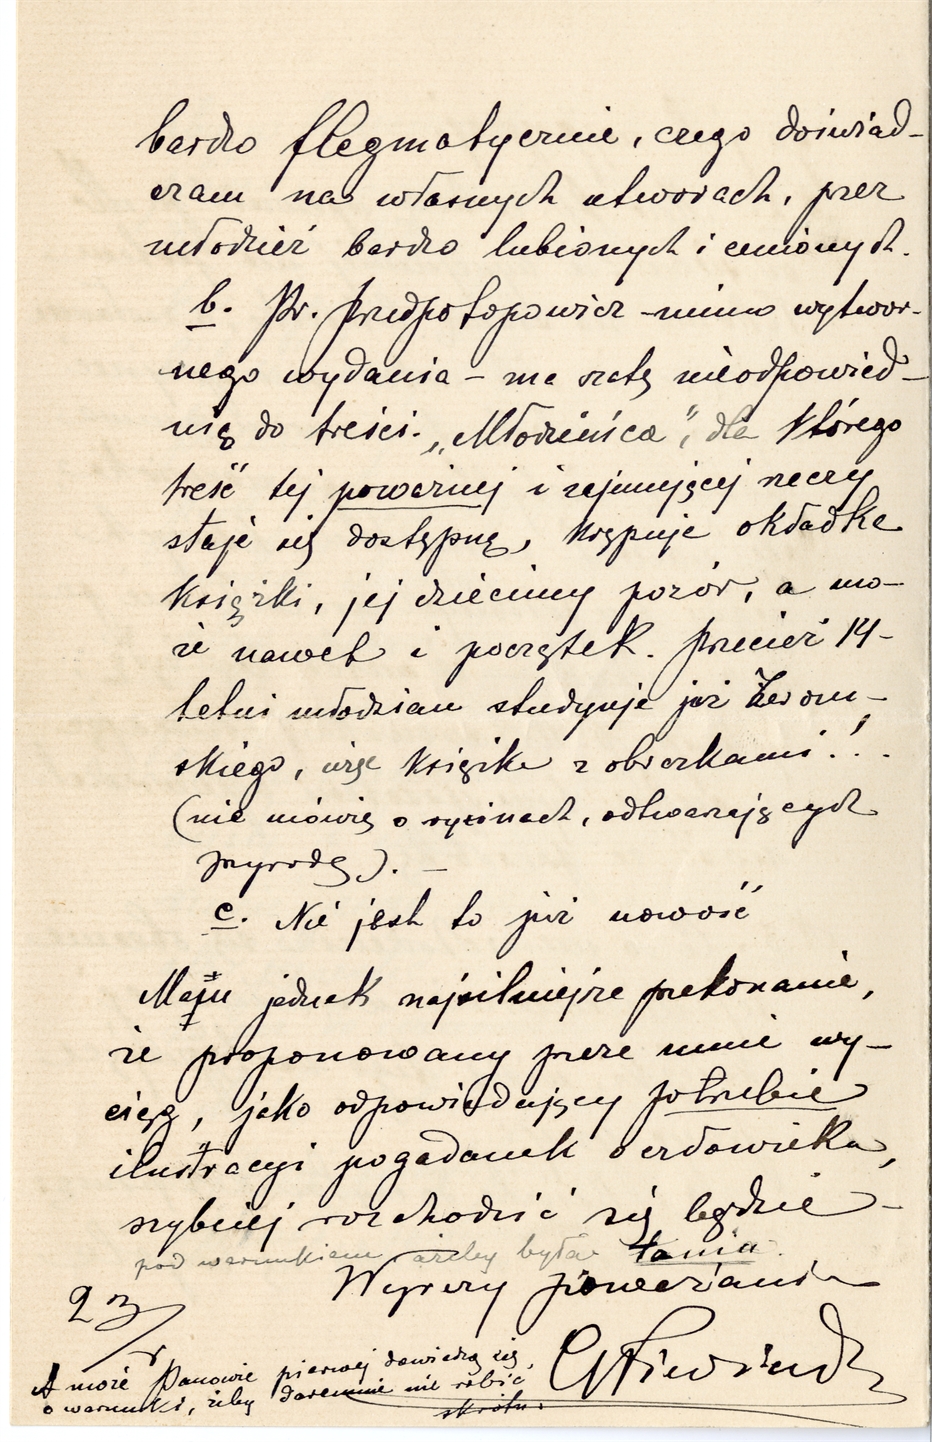 bardzo flegmatycznie, czego doświad-
czam na własnych utworach, przez
młodzież bardzo lubionych i cenionych.
b. Pr. Przedpotopowicz - mimo wytwor-
nego wydania - ma szatę nieodpowied-
nią do treści. „Młodzieńca", dla którego
treść tej poważnej i zajmującej rzeczy
staje się dostępną, krępuje okładka
książki, jej dziecinny pozór, a mo-
że nawet i początek. Przecież 14-
letni młodzian studyuje już Żerom-
skiego, książka z obrazkami!.
(nie mówię o rycinach, odtwarzających
przyrodę). -
c. Nie jest to już nowość
Mam jednak najsilniejsze przekonanie,
że proponowany przeze mnie wy-
ciąg, jako odpowiadający potrzebie
ilustracyi pogadanek o człowieku,
szybciej rozchodzić się będzie -
pod warunkiem ażeby była tania.
Wyrazy poważania
23/
A może Panowie pierwej dowiedzą się
o warunki, żeby daremnie nie robić
skrótu.